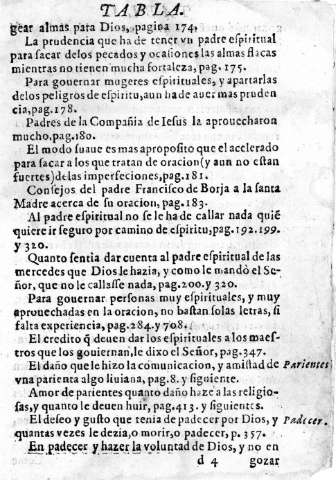 TABLA.
gear almas para Dios, pagina 174,
La prudencia que ha de tener vn padre espiritual
para sacar de los pecados y ocasiones las almas flacas
mientras no tienen mucha fortaleza, pag. 175.
Para gouernar mugeres espirituales, y apartarlas
de los peligros de espiritu, aun ha de auer mas pruden
cia, pag. 178.
Padres de la Compañia de Iesus la aprouecharon
mucho, pag. 180.
El modo suaue es mas aproposito que el acelerado
para sacar a los que tratan de oracion (y aun no estan
fuertes) de las imperfeciones, pag. 181.
Consejos del padre Francisco de Borja a la santa
Madre acerca de su oracion, pag. 183.
Al padre espiritual no se le ha de callar nada quiē
quiere ir seguro por camino de espiritu, pag. 192. 199.
y 320.
Quanto sentia dar cuenta al padre espiritual de las
mercedes que Dios le hazia, y como le mandò el Se-
ñor, que no le callasse nada, pag. 200. y 320.
Para gouernar personas muy espirituales, y muy
aprouechadas en la oracion, no bastan solas letras, si
falta experiencia, pag. 284. y 708.
El credito q̃ deuen dar los espirituales a los maes-
tros que los gouiernan, le dixo el Señor, pag. 347.
El daño que le hizo la comunicacion, y amistad de Parientes
vna parienta algo liuiana, pag. 8. y siguiente.
Amor de parientes quanto daño haze a las religio-
sas, y quanto le deuen huir, pag. 413. y siguientes.
El deseo y gusto que tenia de padecer por Dios, y Padecer.
quantas vezes le dezia, o morir, o padecer, p. 357.
En padecer y hazer la voluntad de Dios, y no en
d 4 gozar